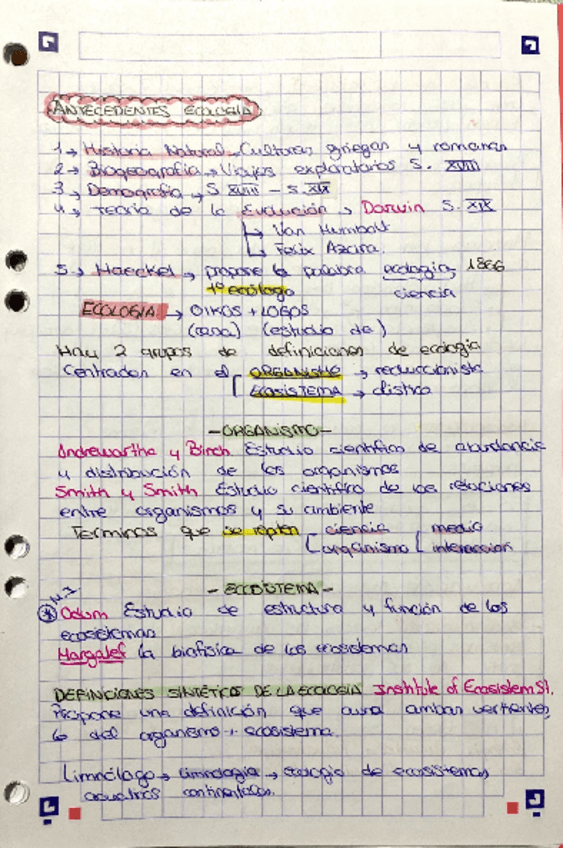 ANTECEDENTES ECOLOGÍA
1→ Historia Natural → Culturas griegas y romanas
2→ Biogeografía → Viajes exploratorios S. XVIII
3→ Demografía → S. XVIII - S. XIX
4→ Teoría de la Evolución → Darwin S. XIX
↳ Van Humbolt
↳ Felix Azara.
5→ Haeckel → propone la palabra ecología, 1866
1º ecólogo ciencia
ECOLOGIA → OIKOS + LOGOS
(casa) (estudio de)
Hay 2 grupos de definiciones de ecología
Centradas en el ORGANISMO → reduccionista
ECOSISTEMA →
- ORGANISMO -
Andrewartha y Birch Estudio científico de abundancia
y distribución de los organismos
Smith y Smith Estudio científico de las relaciones
entre organismos y su ambiente
Terminos que se repiten ciencia medio
organismo interaccion
- ECOSISTEMA -
Odum Estudio de estructura y función de los
ecosistemas
Margalef la biofísica de los ecosistemas
DEFINICIONES SINTÉTICAS DE LA ECOLOGIA Institute of Ecosistem St.
Propone una definición que auna ambas vertientes,
la del organismo + ecosistema.
Limnólogo → Limnología → ecología de ecosistemas
acuaticos continentales.